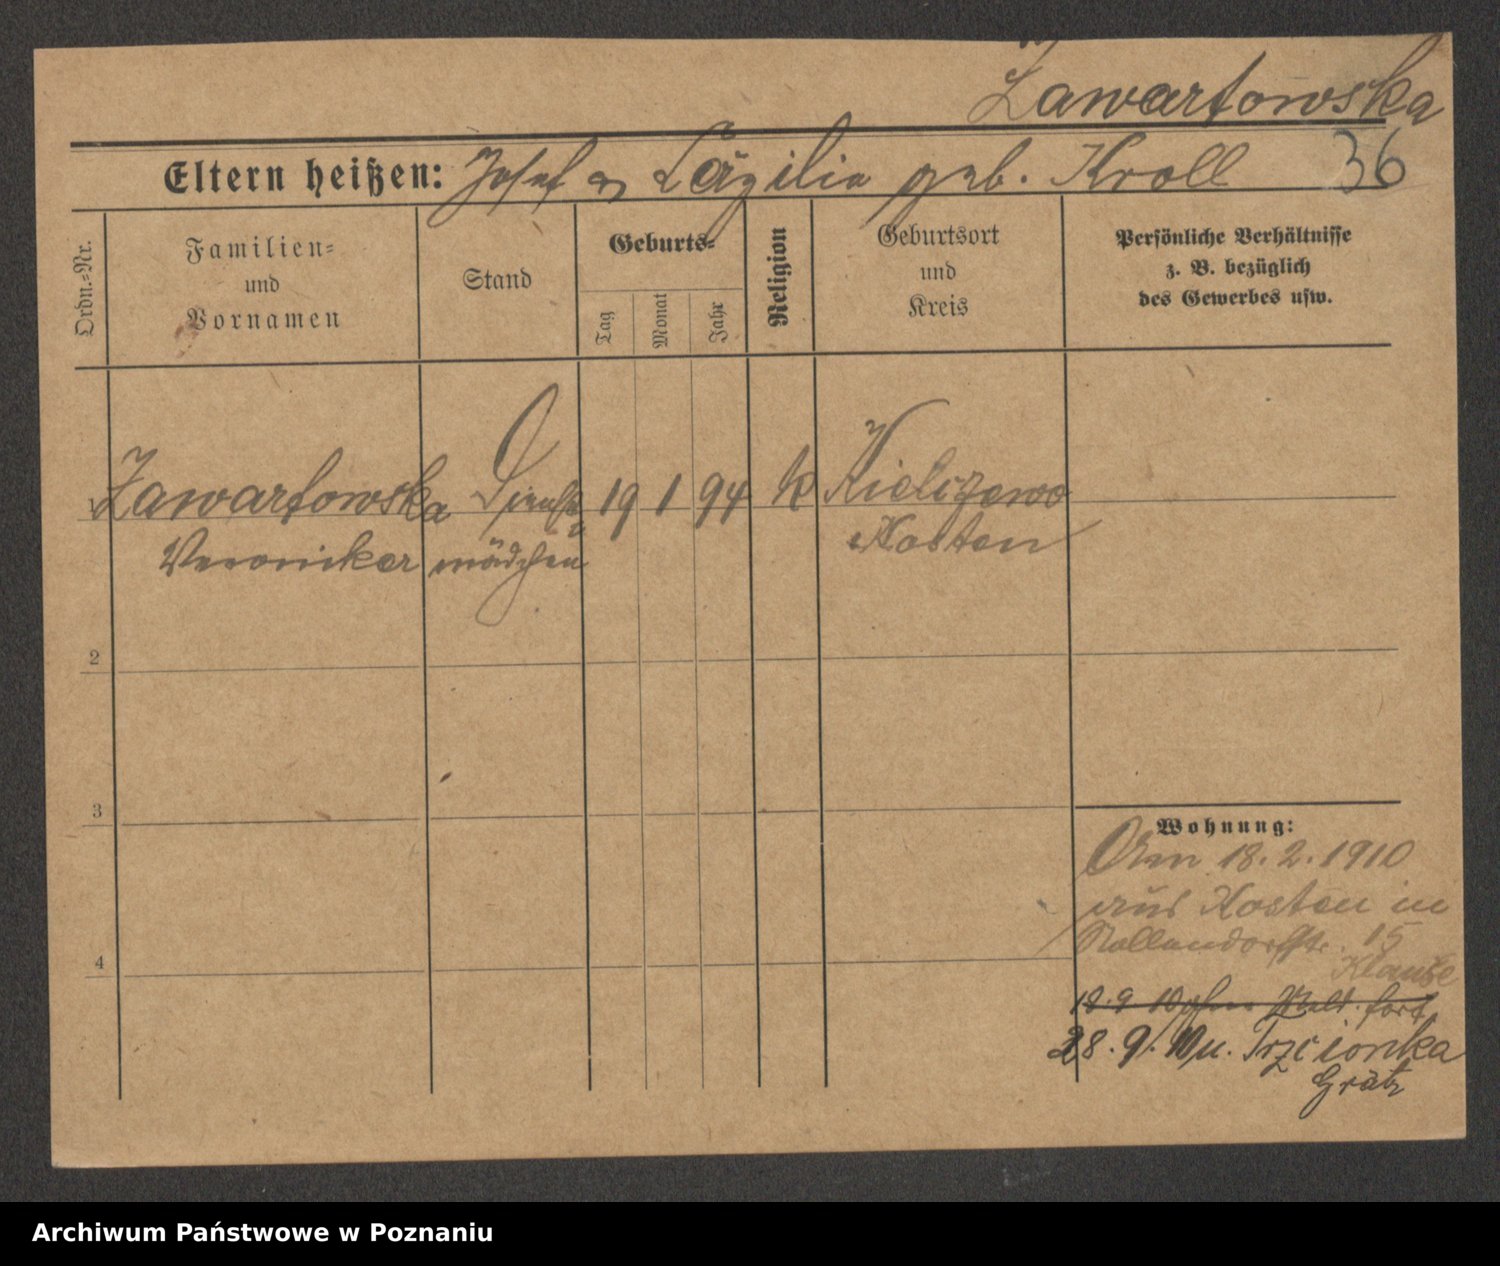 Zawartowska
Eltern heißen: Josef u Cäzilia geb. Kroll 36
Ordn.-Nr.
Familien- und Vornamen
Stand
Geburts-
Tag
Monat
Jahr
Religion
Geburtsort und Kreis
Persönliche Verhältnisse
z. B. bezüglich
des Gewerbes usw.
1 Zawartowska Dienst- 19 1 94 k Kielczewo
Veronika mädchen Kosten
2
3
4
Wohnung:
Am 18.2.1910
aus Kosten in
Nollendorfstr. 15
Klause
18.9.10 fort
28.9.10 n. Trzcionka
Grätz
Archiwum Państwowe w Poznaniu